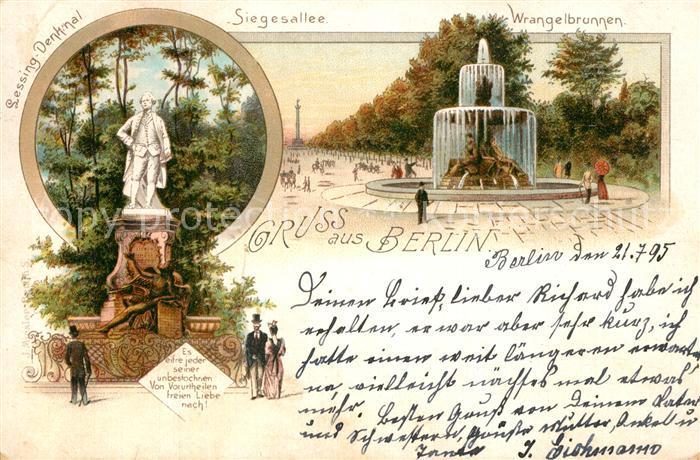 Lessing-Denkmal
Siegesallee.
Wrangelbrunnen.
GRUSS aus BERLIN.
Es
eifre jeder
seiner
unbestochnen
Von Vorurtheilen
freien Liebe
nach!
Berlin den 21.7 95
Deinen Brief, lieber Richard habe ich
erhalten, er war aber sehr kurz, ich
hatte einen weit längeren erwartet
na vielleicht nächstes mal etwas
mehr. Besten Gruß von Deinem Vater
und Schwestern, Grüße Mutter, Onkel u
Tante